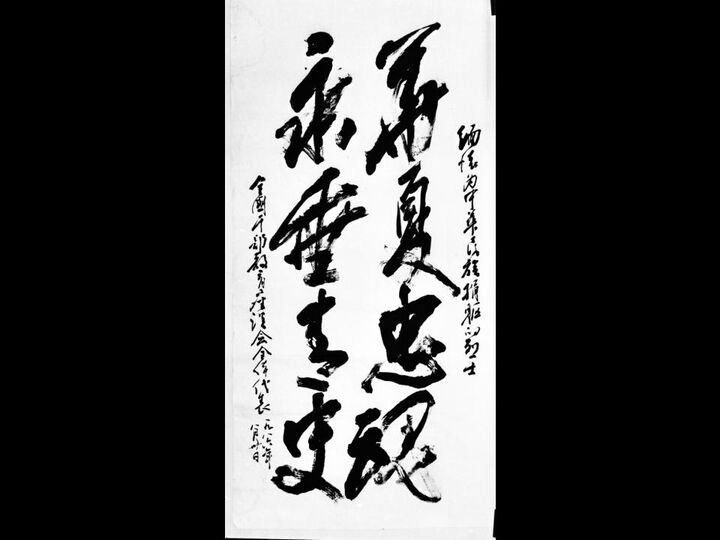 缅怀为中华民族捐躯的烈士
华夏忠魂
永垂青史
全国干部教育座谈会全体代表
一九八六年
八月廿日